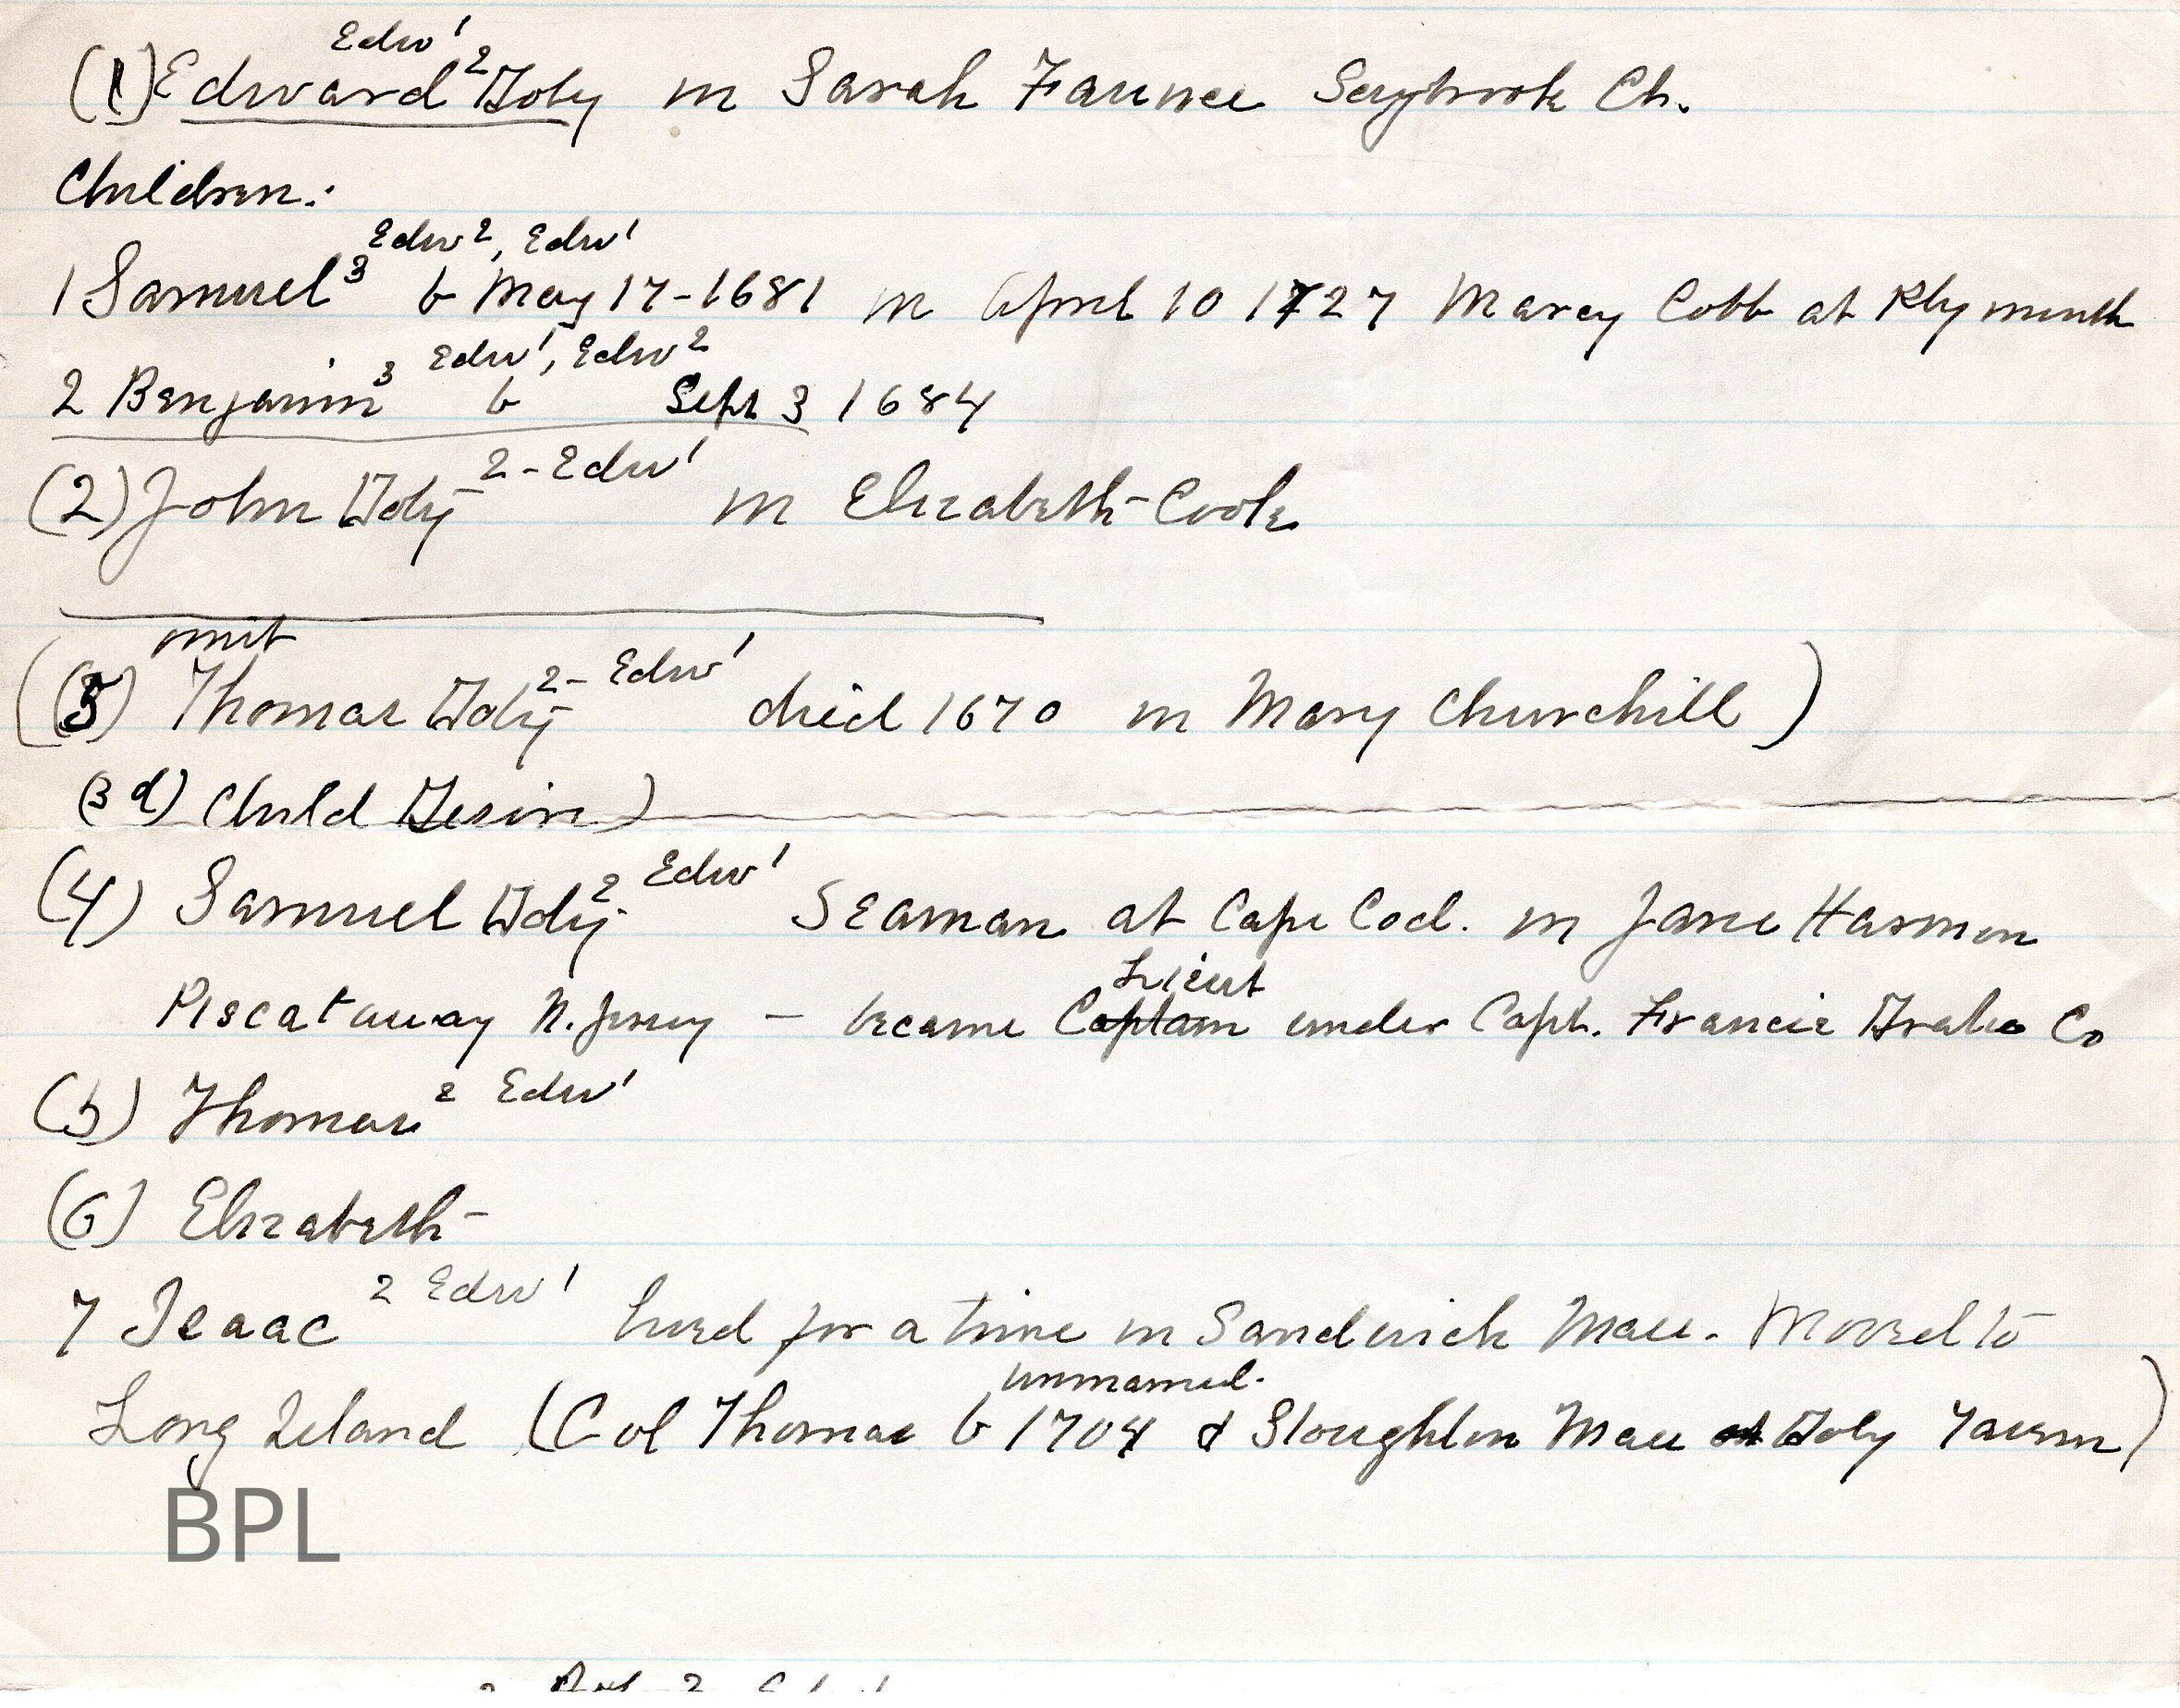 Edw¹
(1) Edward² Doty m Sarah Faunce Saybrook Ch.
Children:
Edw², Edw¹
1 Samuel³ b May 17-1681 m April 10 1727 Marcy Cobb at Plymouth
Edw¹, Edw²
2 Benjamin³ b Sept 3 1684
(2) John Doty ²-Edw¹ m Elizabeth Cooke
omit
((3) Thomas Doty ²- Edw¹ died 1670 m Mary Churchill)
(3d) Child Desire)
(4) Samuel Doty² Edw¹ Seaman at Cape Cod. m Jane Harmon
Lieut
Piscataway N. Jersey – became Captain under Capt. Francis Drake Co
(5) Thomas² Edw¹
(6) Elizabeth
7 Isaac ² Edw¹ lived for a time in Sandwich Mass. Moved to
unmarried.
Long Island (Col Thomas b 1704 d Stoughton Mass Doty Tavern)
BPL